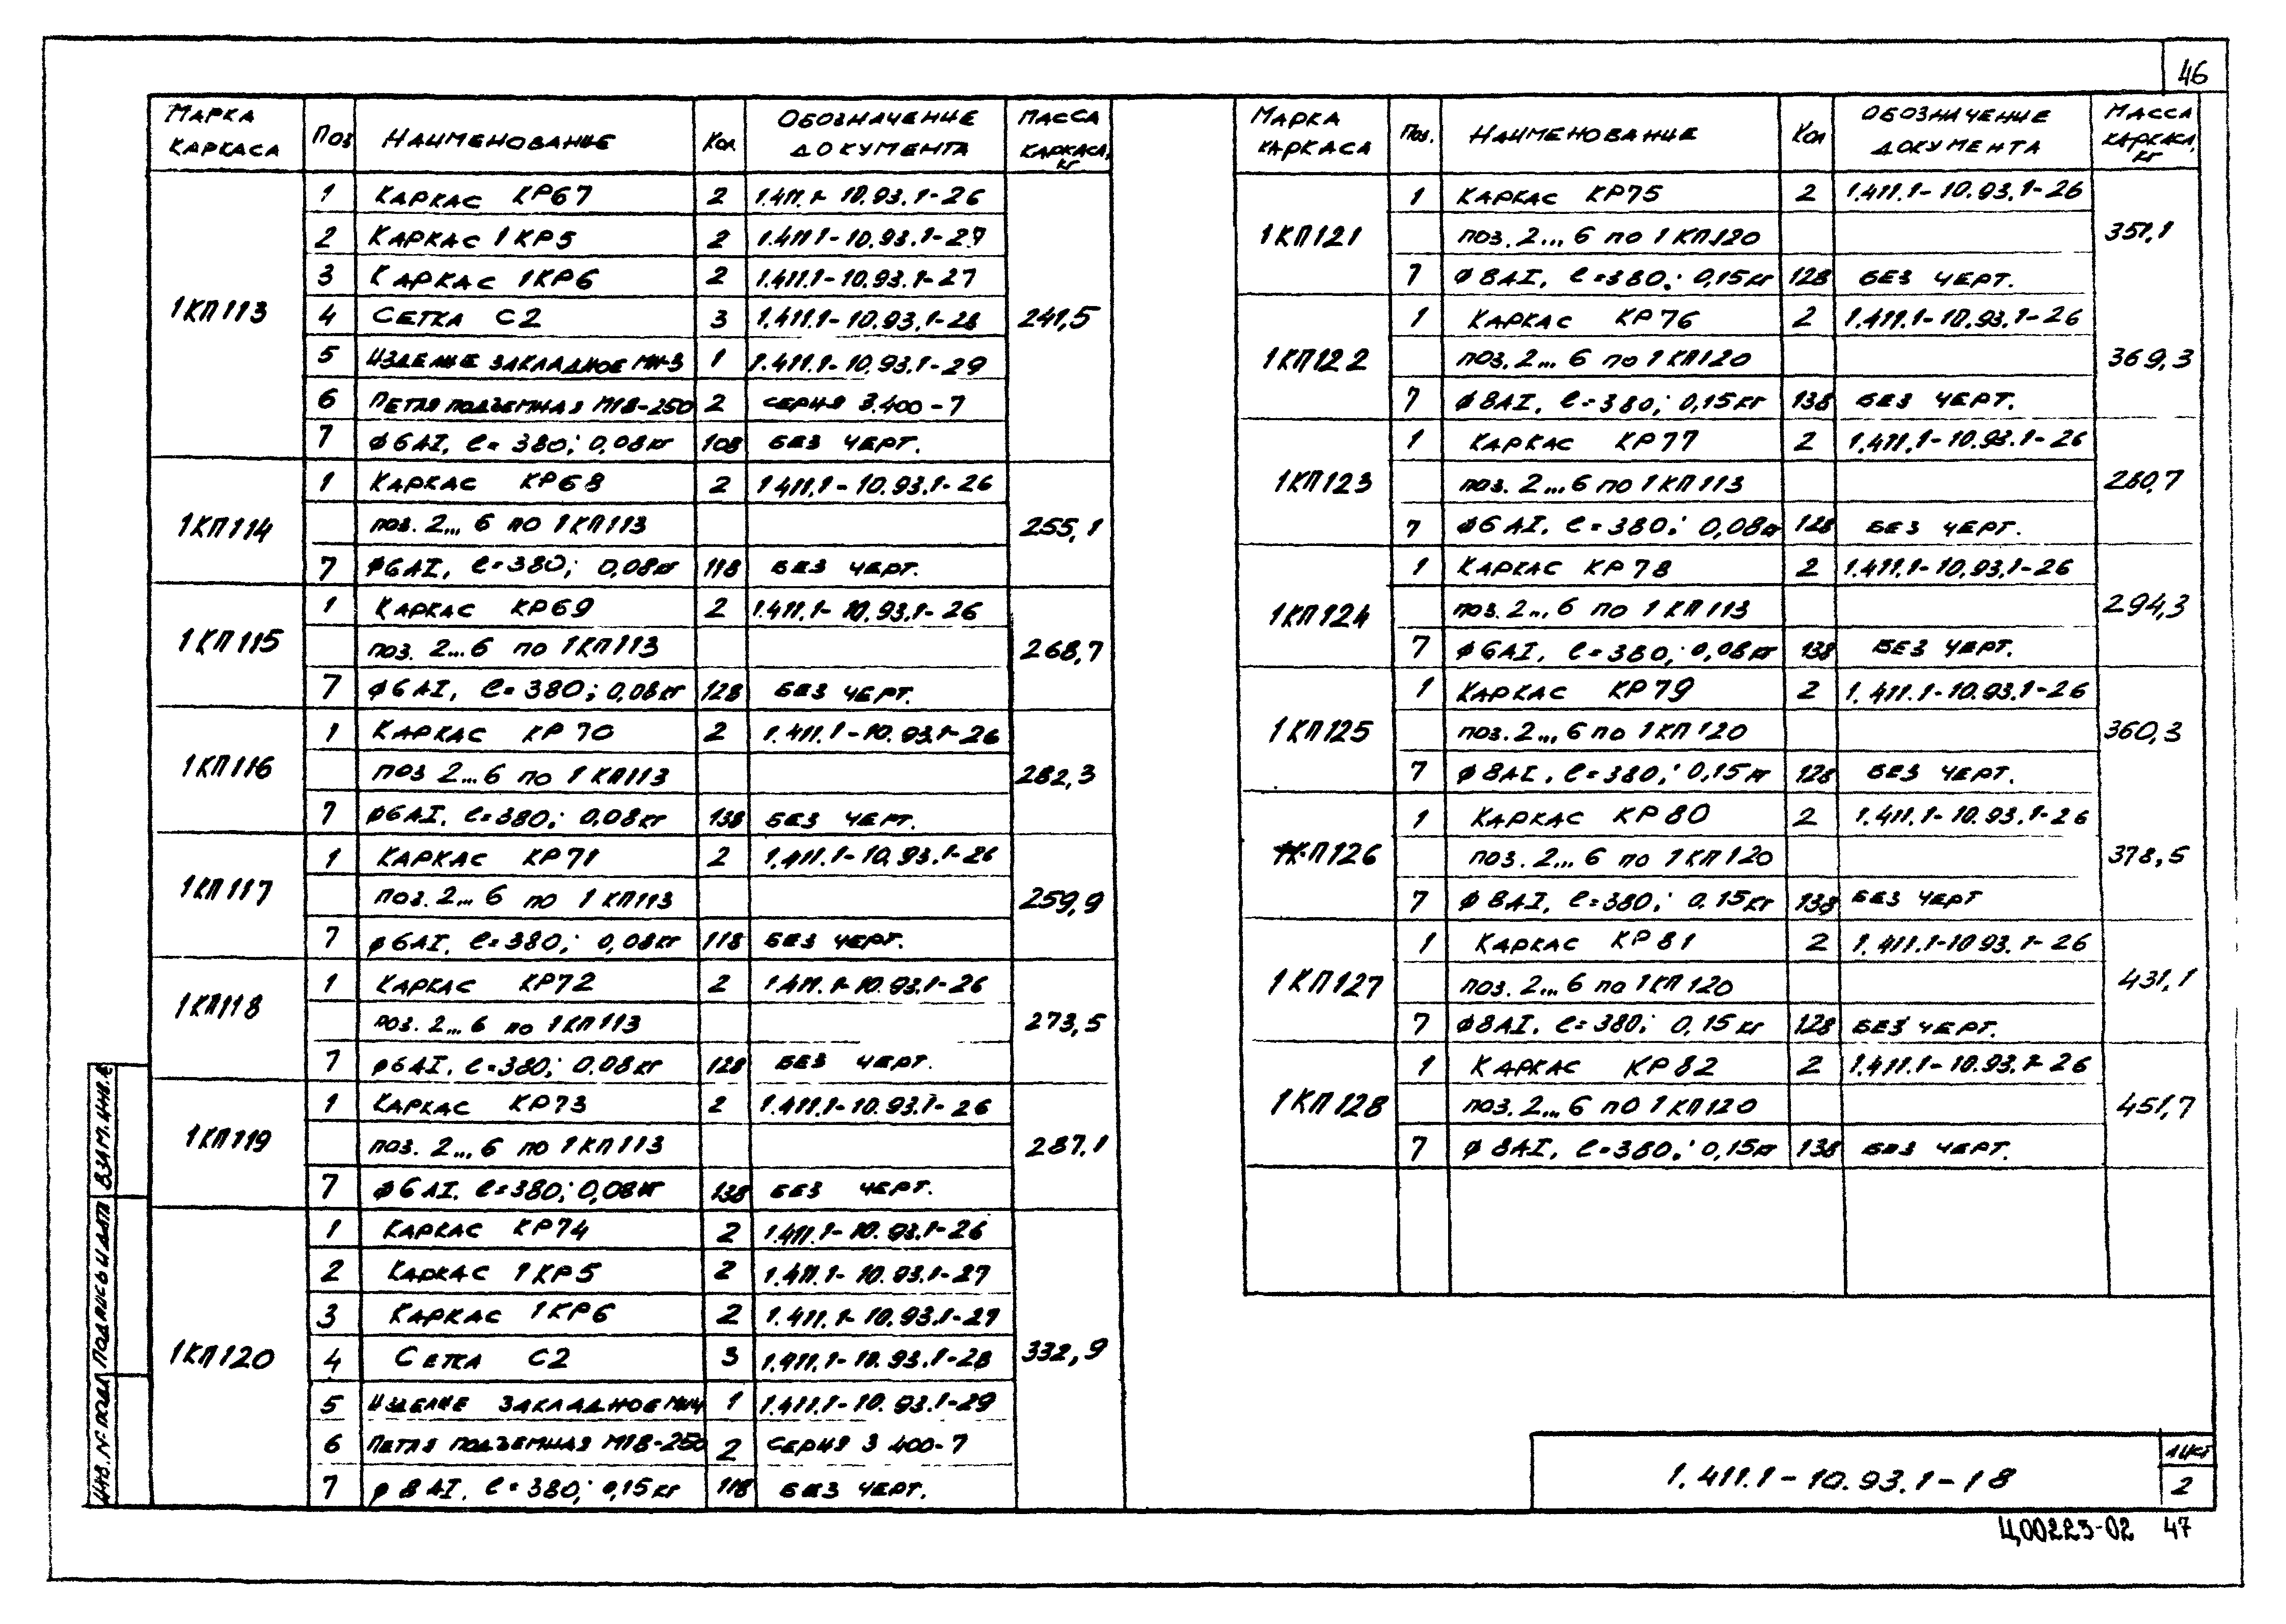 46
Марка каркаса | Поз | Наименование | Кол. | Обозначение документа | Масса каркаса, кг
1КП113 | 1 | Каркас КР67 | 2 | 1.411.1-10.93.1-26 | 241,5
2 | Каркас 1КР5 | 2 | 1.411.1-10.93.1-27
3 | Каркас 1КР6 | 2 | 1.411.1-10.93.1-27
4 | Сетка С2 | 3 | 1.411.1-10.93.1-28
5 | Изделие закладное МН-3 | 1 | 1.411.1-10.93.1-29
6 | Петля подъемная М18-250 | 2 | серия 3.400-7
7 | φ6АI, ℓ=380; 0,08кг | 108 | без черт.
1КП114 | 1 | Каркас КР68 | 2 | 1.411.1-10.93.1-26 | 255,1
поз. 2...6 по 1КП113
7 | φ6АI, ℓ=380; 0,08кг | 118 | без черт.
1КП115 | 1 | Каркас КР69 | 2 | 1.411.1-10.93.1-26 | 268,7
поз. 2...6 по 1КП113
7 | φ6АI, ℓ=380; 0,08кг | 128 | без черт.
1КП116 | 1 | Каркас КР70 | 2 | 1.411.1-10.93.1-26 | 282,3
поз 2...6 по 1КП113
7 | φ6АI, ℓ=380; 0,08кг | 138 | без черт.
1КП117 | 1 | Каркас КР71 | 2 | 1.411.1-10.93.1-26 | 259,9
поз. 2...6 по 1КП113
7 | φ6АI, ℓ=380; 0,08кг | 118 | без черт.
1КП118 | 1 | Каркас КР72 | 2 | 1.411.1-10.93.1-26 | 273,5
поз. 2...6 по 1КП113
7 | φ6АI, ℓ=380; 0,08кг | 128 | без черт.
1КП119 | 1 | Каркас КР73 | 2 | 1.411.1-10.93.1-26 | 287,1
поз. 2...6 по 1КП113
7 | φ6АI, ℓ=380; 0,08кг | 138 | без черт.
1КП120 | 1 | Каркас КР74 | 2 | 1.411.1-10.93.1-26 | 332,9
2 | Каркас 1КР5 | 2 | 1.411.1-10.93.1-27
3 | Каркас 1КР6 | 2 | 1.411.1-10.93.1-27
4 | Сетка С2 | 3 | 1.411.1-10.93.1-28
5 | Изделие закладное МН4 | 1 | 1.411.1-10.93.1-29
6 | Петля подъемная М18-250 | 2 | серия 3 400-7
7 | φ8АI, ℓ=380; 0,15кг | 118 | без черт.
Марка каркаса | Поз. | Наименование | Кол | Обозначение документа | Масса каркаса, кг
1КП121 | 1 | Каркас КР75 | 2 | 1.411.1-10.93.1-26 | 351,1
поз. 2...6 по 1КП120
7 | φ8АI, ℓ=380; 0,15кг | 128 | без черт.
1КП122 | 1 | Каркас КР76 | 2 | 1.411.1-10.93.1-26 | 369,3
поз. 2...6 по 1КП120
7 | φ8АI, ℓ=380; 0,15кг | 138 | без черт.
1КП123 | 1 | Каркас КР77 | 2 | 1.411.1-10.93.1-26 | 280,7
поз. 2...6 по 1КП113
7 | φ6АI, ℓ=380; 0,08кг | 128 | без черт.
1КП124 | 1 | Каркас КР78 | 2 | 1.411.1-10.93.1-26 | 294,3
поз. 2...6 по 1КП113
7 | φ6АI, ℓ=380; 0,08кг | 138 | без черт.
1КП125 | 1 | Каркас КР79 | 2 | 1.411.1-10.93.1-26 | 360,3
поз. 2...6 по 1КП120
7 | φ8АI, ℓ=380; 0,15кг | 128 | без черт.
1КП126 | 1 | Каркас КР80 | 2 | 1.411.1-10.93.1-26 | 378,5
поз. 2...6 по 1КП120
7 | φ8АI, ℓ=380; 0.15кг | 138 | без черт
1КП127 | 1 | Каркас КР81 | 2 | 1.411.1-10 93.1-26 | 431,1
поз. 2...6 по 1КП120
7 | φ8АI, ℓ=380; 0,15кг | 128 | без черт.
1КП128 | 1 | Каркас КР82 | 2 | 1.411.1-10.93.1-26 | 451,7
поз. 2...6 по 1КП120
7 | φ8АI, ℓ=380; 0,15кг | 138 | без черт.
Инв. № подл | Подпись и дата | Взам. инв. №
1.411.1-10.93.1-18
Лист
2
Ц00223-02 47